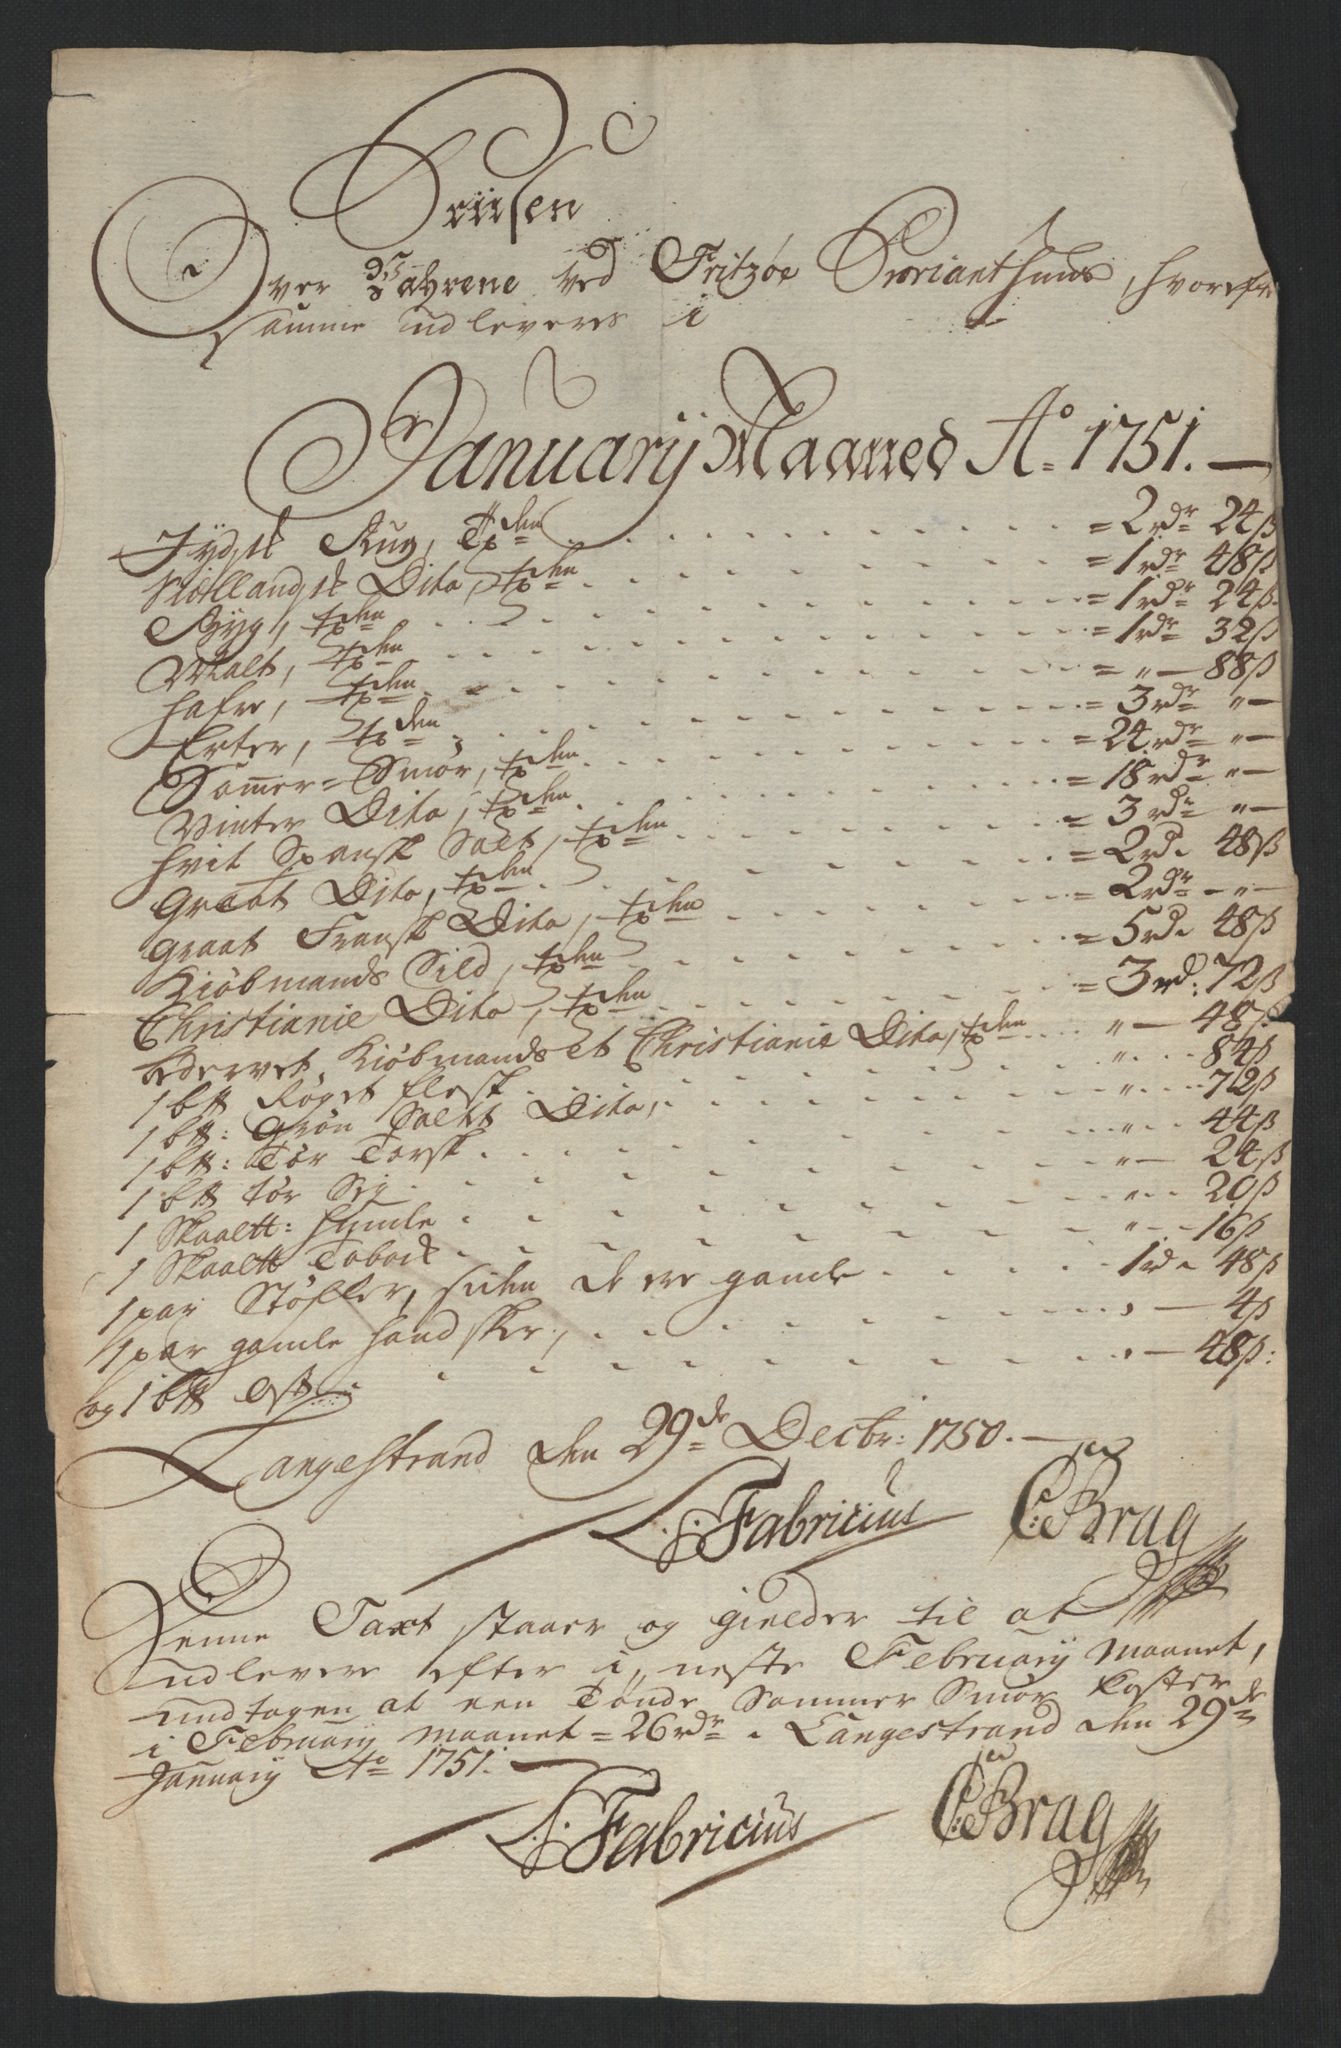 Priisen
Over Vahrene ved Fritzøe Proviant Huus, hvorefter
samme udleveres i
Januarij Maaned Aº 1751.
Jydsk Rug, Tønden = 2 rdr 24 ß
Siellandsk Dito, Tønden = 1 rdr 48 ß
Byg, Tønden = 1 rdr 24 ß
Malt, Tønden = 1 rdr 32 ß
Hafre, Tønden = " — 88 ß
Erter, Tønden = 3 rdr " —
Sommer = Smør, Tønden = 24 rdr " —
Vinter Dito, Tønden = 18 rdr " —
Hvit Spansk Salt, Tønden = 3 rdr " —
Graat Dito, Tønden = 2 rd. 48 ß
Graat Fransk Dito, Tønden = 2 rdr — " —
Kiøbmands Sild, Tønden = 5 rd. 48 ß
Christianie Dito, Tønden = 3 rd: 72 ß
Kiøbmands et Christianie Dito, Tønden " — 48 ß
1 b℔ Røget flesk " 84 ß
1 b℔: Grøn Saltt Dito, " 72 ß
1 b℔: Tør Torsk " 44 ß
1 b℔ tør Sey " — 24 ß
1 Skaal℔: Humle " 20 ß
1 Skaal℔ Toback " 16 ß
1 par Støfler, siden de ere gamle 1 rd. 48 ß
1 par gamle Handsker, " — 4 ß
og 1 b℔ Ost " — 48 ß:
Langestrand den 29de Decbr: 1750.
L: S: Fabricius C: Brag
Denne Taxt staaer og gielder til at
udlevere efter i, neste Februarij Maanet,
undtagen at een Tønde Sommer Smør koster
i Februarij Maanet = 26 rdr. Langestrand den 29de
Januarij Aº 1751.
L: S: Fabricius C: Brag